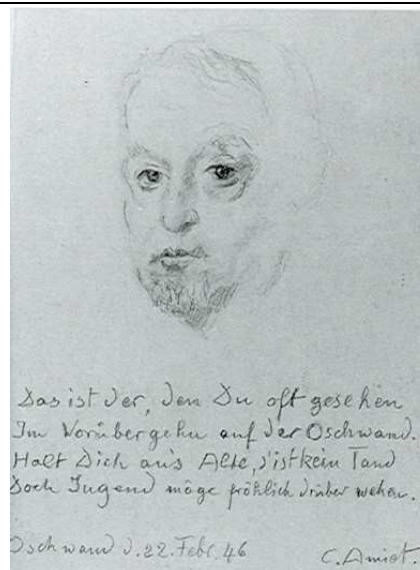 Das ist der, den Du oft gesehen
Im Vorübergehn auf der Oschwand.
Halt Dich an's Alte, s'ist kein Tand
Doch Jugend möge fröhlich drüber wehen.
Oschwand d. 22. Febr. 46
C. Amiet.